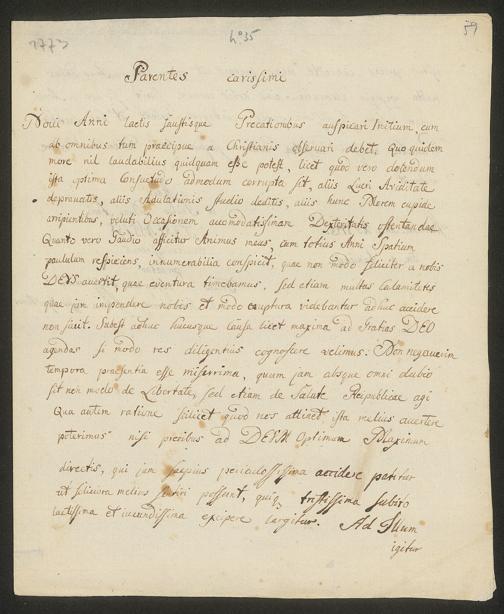 1773
No 35
59
Parentes carissimi
Novi Anni laetis faustisque Precationibus auspicari Initium, cum
ab omnibus tum praecipue a Christianis observari debet. Quo quidem
more nil laudabilius quidquam esse potest, licet quod vero dolendum
ista optima Consuetudo admodum corrupta sit, aliis Lucri Aviditate
depravatis, aliis Adulationis studio deditis, aliis hunc Morem cupide
aripientibus, veluti Occasionem accomodatissimam Dexteritatis ostentandae
Quanto vero Gaudio afficitur Animus meus, cum totius Anni Spatium
paululum respiciens, innumerabilia conspicit, quae non modo feliciter a nobis
DEUS avertit, quae eventura timebamus, sed etiam multas calamitates
quae jam impendere nobis et modo eruptura videbantur adhuc accidere
non sivit. Subest adhuc hucusque causa licet maxima ad Gratias DEO
agendas si modo res diligentius cognoscere velimus. Non negaverim
tempora praesentia esse miserrima, quum jam absque omni dubio
sit non modo de Libertate, sed etiam de Salute Reipublicae agi
Qua autem ratione scilicet quod nos attinet, ista melius avertere
poterimus nisi precibus ad DEUM Optimum Maximum
directis, qui jam saepius periculosissima accidere patitur
ut feliciora melius sentiri possunt, quiq tristissima subito
laetissima et iucundissima excipere largitur. Ad Illum
igitur